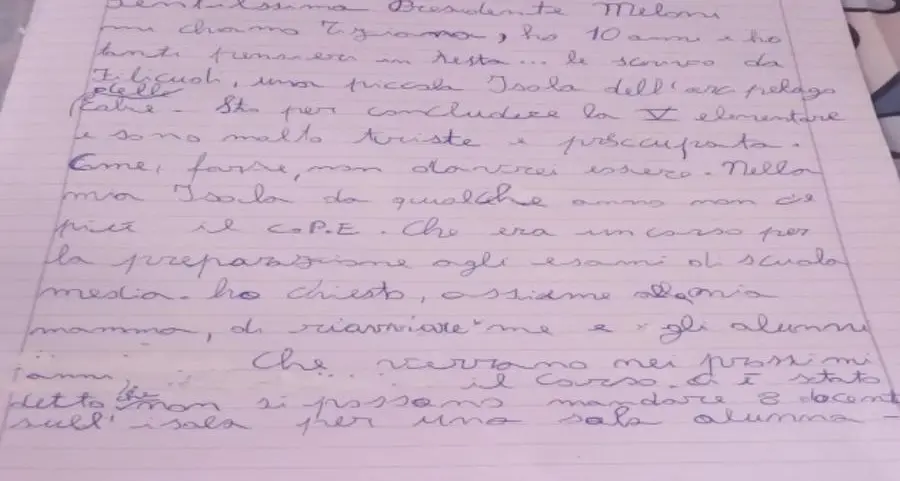 Gentilissima Presidente Meloni
mi chiamo Tiziana, ho 10 anni e ho
tanti pensieri in testa... le scrivo da
Filicudi, una piccola Isola dell'arcipelago
delle
Eolie. Sto per concludere la V elementare
e sono molto triste e preoccupata.
Come, forse, non dovrei essere. Nella
mia Isola da qualche anno non c'è
più il C.P.E. Che era un corso per
la preparazione agli esami di scuola
media. ho chiesto, assieme alla mia
mamma, di riavviare "me e gli alunni
Che verrano nei prossimi
anni il corso. Ci è stato
detto che non si possono mandare 8 docenti
sull'isola per una sola alunna -